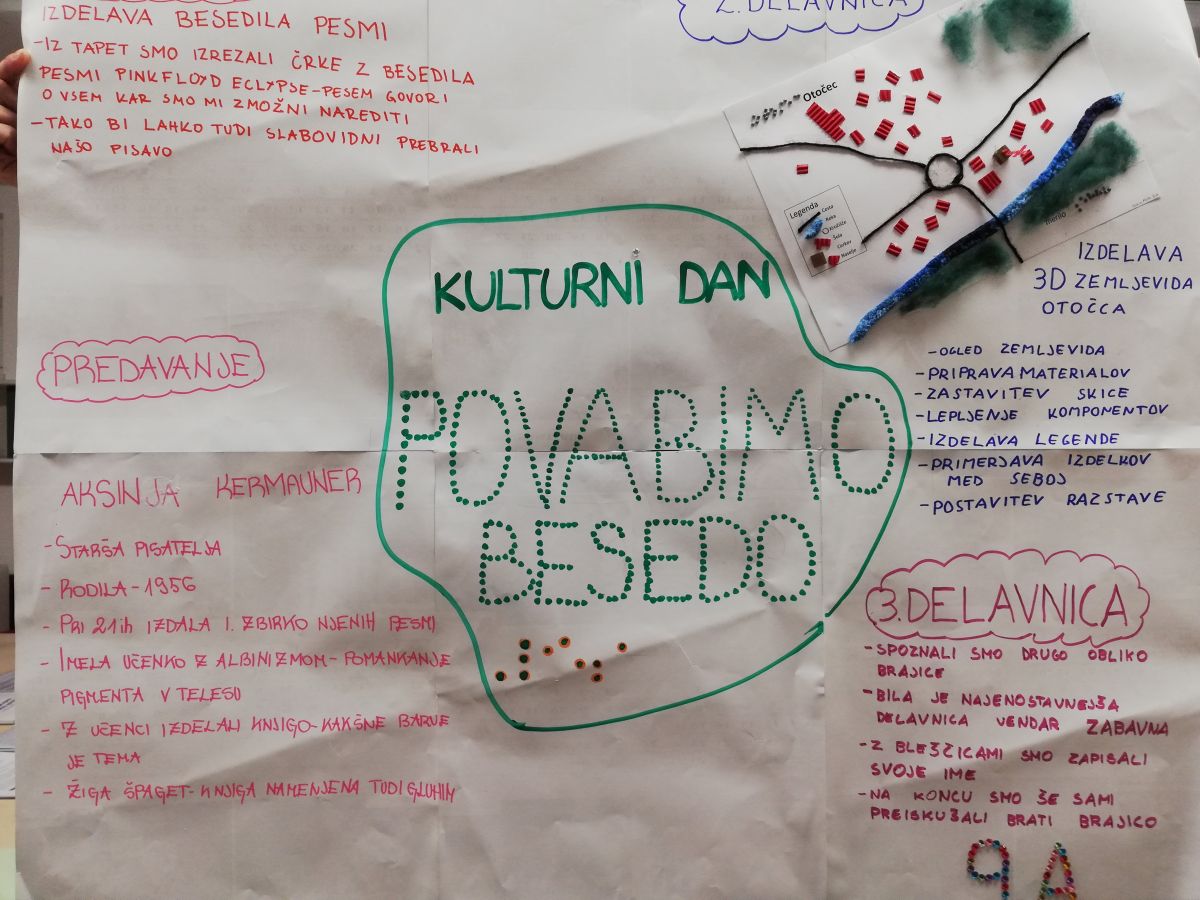 IZDELAVA BESEDILA PESMI
-IZ TAPET SMO IZREZALI ČRKE Z BESEDILA
PESMI PINK FLOYD ECLYPSE-PESEM GOVORI
O VSEM KAR SMO MI ZMOŽNI NAREDITI
-TAKO BI LAHKO TUDI SLABOVIDNI PREBRALI
NAŠO PISAVO
2. DELAVNICA
Otočec
Legenda
Cesta
Reka
Krožišče
Šola
Cerkev
Naselje
merilo
IZDELAVA
3D ZEMLJEVIDA
OTOČCA
-OGLED ZEMLJEVIDA
-PRIPRAVA MATERIALOV
-ZASTAVITEV SKICE
-LEPLJENJE KOMPONENTOV
-IZDELAVA LEGENDE
-PRIMERJAVA IZDELKOV
MED SEBOJ
-POSTAVITEV RAZSTAVE
KULTURNI DAN
POVABIMO
BESEDO
PREDAVANJE
AKSINJA KERMAUNER
-STARŠA PISATELJA
- RODILA-1956
- PRI 21ih IZDALA 1. ZBIRKO NJENIH PESMI
- IMELA UČENKO Z ALBINIZMOM-POMANKANJE
PIGMENTA V TELESU
- Z UČENCI IZDELALI KNJIGO-KAKŠNE BARVE
JE TEMA
- ŽIGA ŠPAGET-KNJIGA NAMENJENA TUDI GLUHIM
3. DELAVNICA
-SPOZNALI SMO DRUGO OBLIKO
BRAJICE
-BILA JE NAJENOSTAVNEJŠA
DELAVNICA VENDAR ZABAVNA
-Z BLEŠČICAMI SMO ZAPISALI
SVOJE IME
-NA KONCU SMO ŠE SAMI
PREIZKUŠALI BRATI BRAJICO
9A